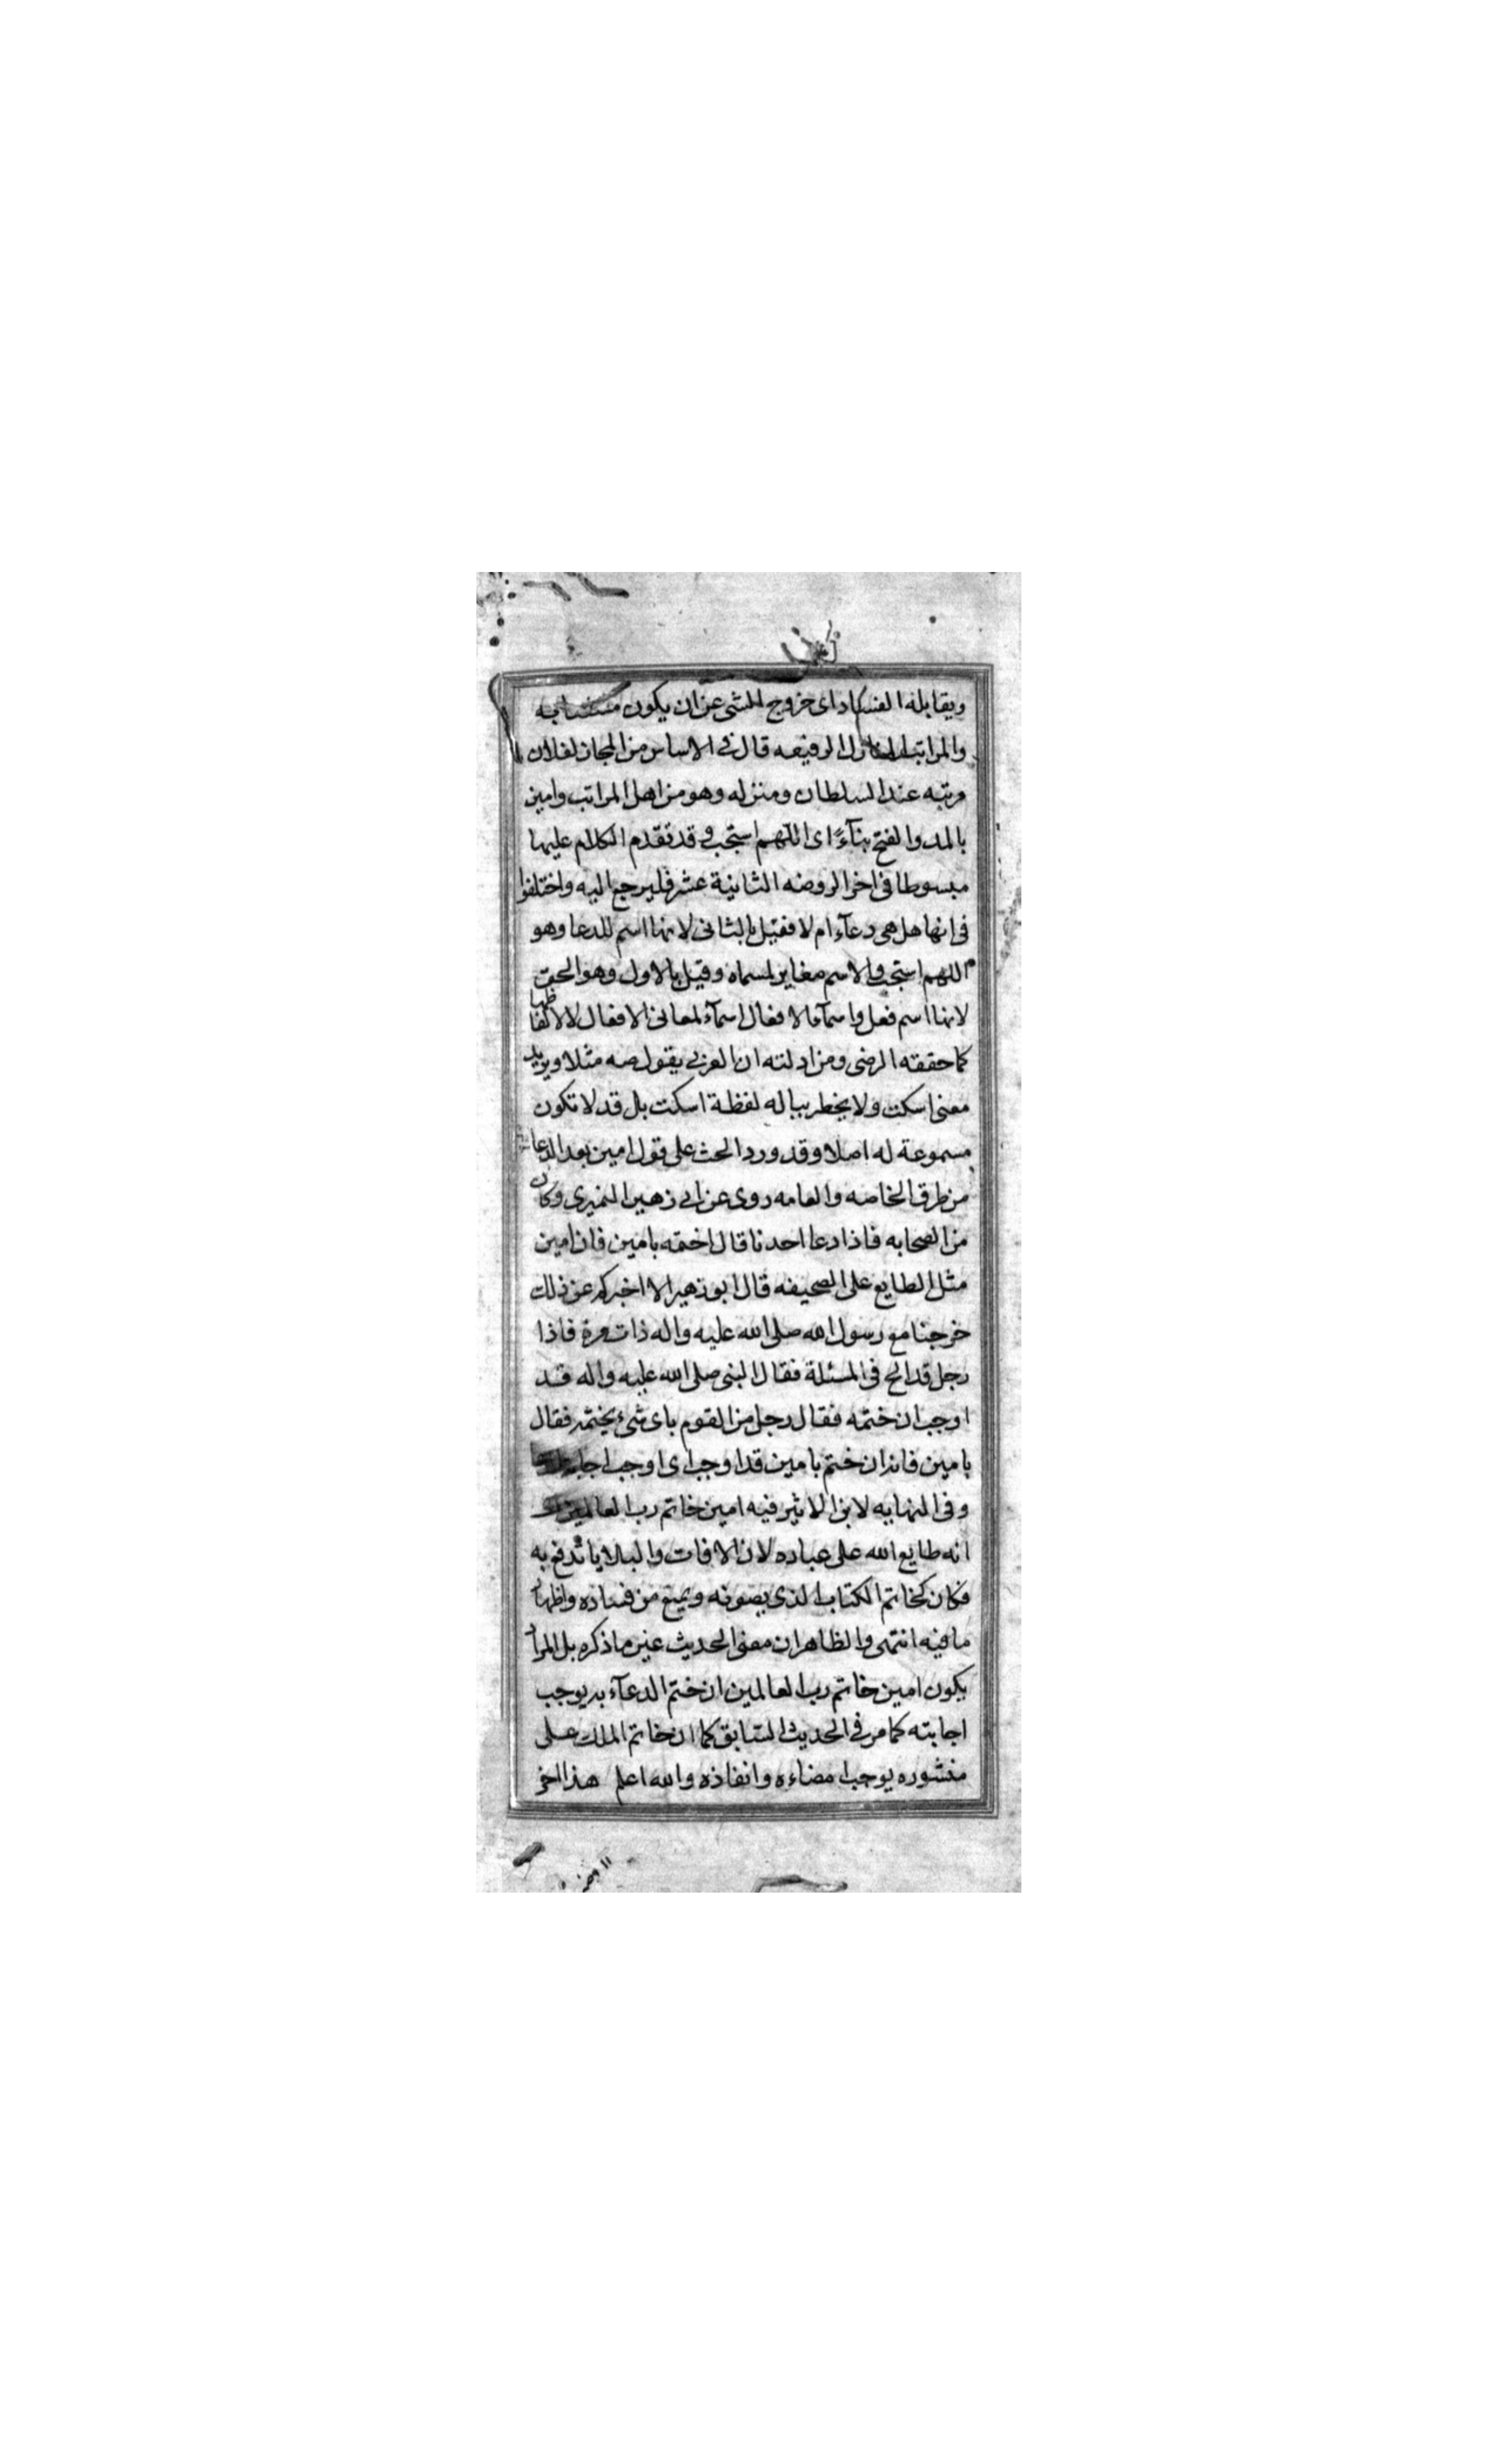 ويقابله الفساد اى خروج الشى عن ان يكون منتفعا به
والمراتب المنازل الرفيعه قال فى الاساس من المجاز لفلان
مرتبه عند السلطان ومنزله وهو من اهل المراتب وامين
بالمد والفتح بناًء اى اللّهم استجب و قد تقدم الكلام عليها
مبسوطا فى اخر الروضه الثانية عشر فليرجع اليه واختلفوا
فى انها هل هى دعآء ام لا فقيل بالثانى لانها اسم للدعا وهو
اللهم استجب والاسم مغاير لمسماه وقيل بالاول وهو الحق
لانها اسم فعل واسمآء الافعال اسمآء لمعانى الافعال لا لالفاظها
كما حققه الرضى ومن ادلته ان العربى يقول صه مثلا ويريد
معنى اسكت ولا يخطر بباله لفظة اسكت بل قد لا تكون
مسموعة له اصلا وقد ورد الحث على قول امين بعد الدعا
من طرق الخاصه والعامه روى عن ابى زهير النميرى وكان
من الصحابه فاذا دعا احدنا قال اختمه بامين فان امين
مثل الطابع على الصحيفه قال ابو زهير الا اخبركم عن ذلك
خرجنا مع رسول الله صلى الله عليه واله ذات مرة فاذا
رجل قد الح فى المسئلة فقال النبى صلى الله عليه واله قد
اوجب ان ختمه فقال رجل من القوم باى شىء يختمه فقال
بامين فانه ان ختم بامين قد اوجب اى اوجب اجابة
وفى النهايه لابن الاثير فيه امين خاتم رب العالمين
انه طابع الله على عباده لان الافات والبلايا تدفع به
فكان كخاتم الكتاب الذى يصونه ويمنع من فساده واظهار
ما فيه انتهى والظاهر ان معنى الحديث غير ما ذكره بل المراد
بكون امين خاتم رب العالمين ان ختم الدعآء به يوجب
اجابته كما مر فى الحديث السابق كما ان خاتم الملك على
منشوره يوجب امضاءه وانفاذه والله اعلم هذا اخر